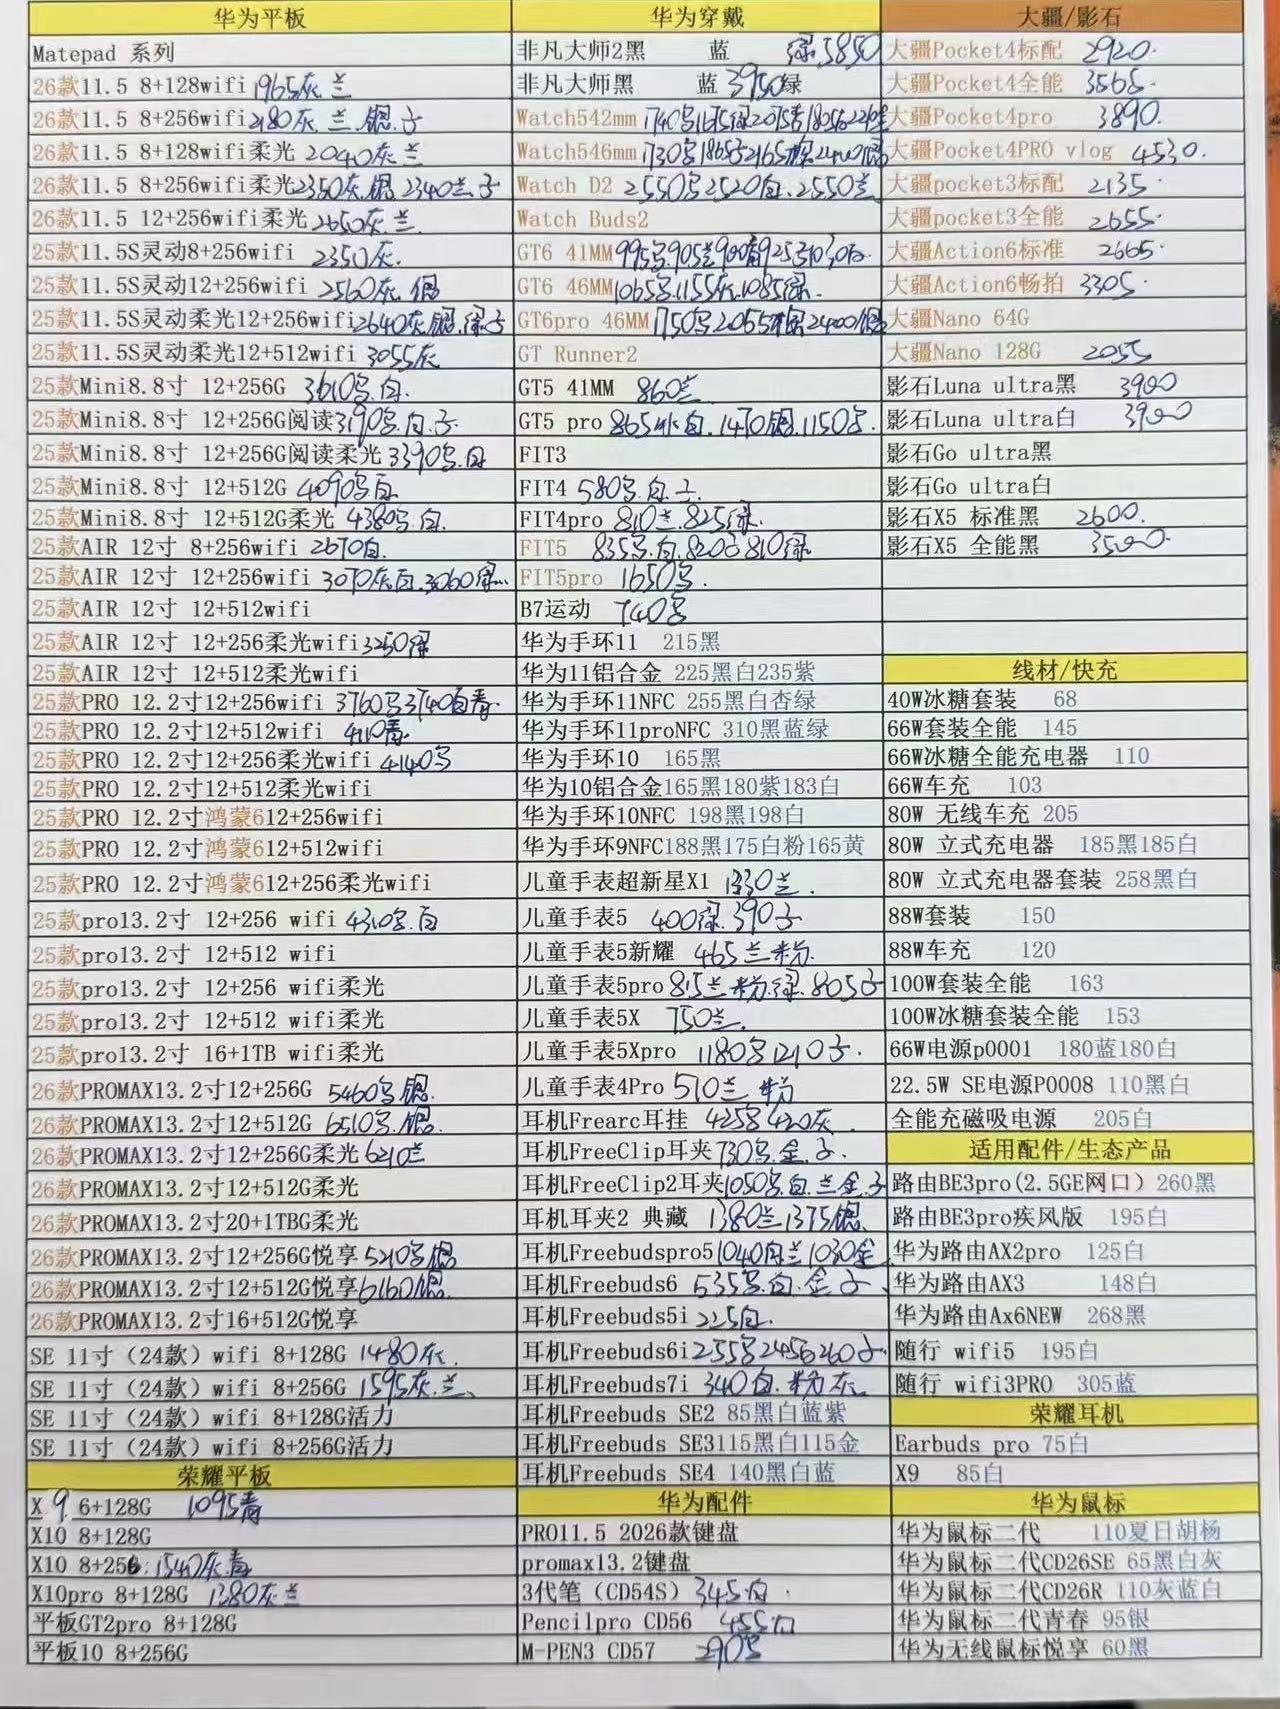 华为平板
Matepad 系列
26款11.5 8+128wifi 1965灰.兰
26款11.5 8+256wifi 2180灰.兰.银.子
26款11.5 8+128wifi柔光 2040灰兰
26款11.5 8+256wifi柔光 2350灰.银 2340兰.子
26款11.5 12+256wifi柔光 2650灰.兰
25款11.5S灵动8+256wifi 2350灰.
25款11.5S灵动12+256wifi 2560灰.银
25款11.5S灵动柔光12+256wifi 2640灰银.绿子
25款11.5S灵动柔光12+512wifi 3055灰
25款Mini8.8寸 12+256G 3610号.白.
25款Mini8.8寸 12+256G阅读 3190号.白.子.
25款Mini8.8寸 12+256G阅读柔光 3390号.白
25款Mini8.8寸 12+512G 4090号白
25款Mini8.8寸 12+512G柔光 4380号.白.
25款AIR 12寸 8+256wifi 2670白.
25款AIR 12寸 12+256wifi 3070灰白.3060绿.
25款AIR 12寸 12+512wifi
25款AIR 12寸 12+256柔光wifi 3250绿
25款AIR 12寸 12+512柔光wifi
25款PRO 12.2寸12+256wifi 3760号3740白青.
25款PRO 12.2寸12+512wifi 4110青.
25款PRO 12.2寸12+256柔光wifi 4140号
25款PRO 12.2寸12+512柔光wifi
25款PRO 12.2寸鸿蒙612+256wifi
25款PRO 12.2寸鸿蒙612+512wifi
25款PRO 12.2寸鸿蒙612+256柔光wifi
25款pro13.2寸 12+256 wifi 4310号.白
25款pro13.2寸 12+512 wifi
25款pro13.2寸 12+256 wifi柔光
25款pro13.2寸 12+512 wifi柔光
25款pro13.2寸 16+1TB wifi柔光
26款PROMAX13.2寸12+256G 5460号银.
26款PROMAX13.2寸12+512G 6510号.银.
26款PROMAX13.2寸12+256G柔光 6210兰
26款PROMAX13.2寸12+512G柔光
26款PROMAX13.2寸20+1TBG柔光
26款PROMAX13.2寸12+256G悦享 5210号银
26款PROMAX13.2寸12+512G悦享 6160银.
26款PROMAX13.2寸16+512G悦享
SE 11寸（24款）wifi 8+128G 1480灰.
SE 11寸（24款）wifi 8+256G 1595灰.兰.
SE 11寸（24款）wifi 8+128G活力
SE 11寸（24款）wifi 8+256G活力
荣耀平板
X 9. 6+128G 1095青
X10 8+128G
X10 8+256. 1540灰.青
X10pro 8+128G 1380灰兰
平板GT2pro 8+128G
平板10 8+256G
华为穿戴
非凡大师2黑 蓝 绿.5850
非凡大师黑 蓝 3950绿
Watch542mm
Watch546mm
Watch D2 2550号2520白.2550兰
Watch Buds2
GT6 41MM
GT6 46MM 1065号.1155灰.1085绿.
GT6pro 46MM
GT Runner2
GT5 41MM 860兰
GT5 pro 865冰白.1470银.1150号.
FIT3
FIT4 580号.白.子.
FIT4pro 810兰.825绿.
FIT5 835号.白.820子810绿
FIT5pro 1650号.
B7运动 740号
华为手环11 215黑
华为11铝合金 225黑白235紫
华为手环11NFC 255黑白杏绿
华为手环11proNFC 310黑蓝绿
华为手环10 165黑
华为10铝合金165黑180紫183白
华为手环10NFC 198黑198白
华为手环9NFC188黑175白粉165黄
儿童手表超新星X1 1330兰.
儿童手表5 400绿.390子
儿童手表5新耀 465兰粉.
儿童手表5pro 815兰粉.绿.805子
儿童手表5X 750兰.
儿童手表5Xpro 1180号1210子.
儿童手表4Pro 510兰 粉
耳机Frearc耳挂 425号420灰.
耳机FreeClip耳夹 730号.金.子.
耳机FreeClip2耳夹 1050号.白.兰金.子
耳机耳夹2 典藏 1380兰1375银.
耳机Freebudspro5 1040白兰1030金
耳机Freebuds6 535号.白.金 子.
耳机Freebuds5i 225白.
耳机Freebuds6i 255号245白260子.
耳机Freebuds7i 340白.粉灰.
耳机Freebuds SE2 85黑白蓝紫
耳机Freebuds SE3115黑白115金
耳机Freebuds SE4 140黑白蓝
华为配件
PRO11.5 2026款键盘
promax13.2键盘
3代笔（CD54S）345白.
Pencilpro CD56 455白
M-PEN3 CD57 290号
大疆/影石
大疆Pocket4标配 2920.
大疆Pocket4全能 3565.
大疆Pocket4pro 3890.
大疆Pocket4PRO vlog 4530.
大疆pocket3标配 2135.
大疆pocket3全能 2655.
大疆Action6标准 2665.
大疆Action6畅拍 3305.
大疆Nano 64G
大疆Nano 128G 2055
影石Luna ultra黑 3900
影石Luna ultra白 3900
影石Go ultra黑
影石Go ultra白
影石X5 标准黑 2600.
影石X5 全能黑 3500.
线材/快充
40W冰糖套装 68
66W套装全能 145
66W冰糖全能充电器 110
66W车充 103
80W 无线车充 205
80W 立式充电器 185黑185白
80W 立式充电器套装 258黑白
88W套装 150
88W车充 120
100W套装全能 163
100W冰糖套装全能 153
66W电源p0001 180蓝180白
22.5W SE电源P0008 110黑白
全能充磁吸电源 205白
适用配件/生态产品
路由BE3pro(2.5GE网口）260黑
路由BE3pro疾风版 195白
华为路由AX2pro 125白
华为路由AX3 148白
华为路由Ax6NEW 268黑
随行 wifi5 195白
随行 wifi3PRO 305蓝
荣耀耳机
Earbuds pro 75白
X9 85白
华为鼠标
华为鼠标二代 110夏日胡杨
华为鼠标二代CD26SE 65黑白灰
华为鼠标二代CD26R 110灰蓝白
华为鼠标二代青春 95银
华为无线鼠标悦享 60黑